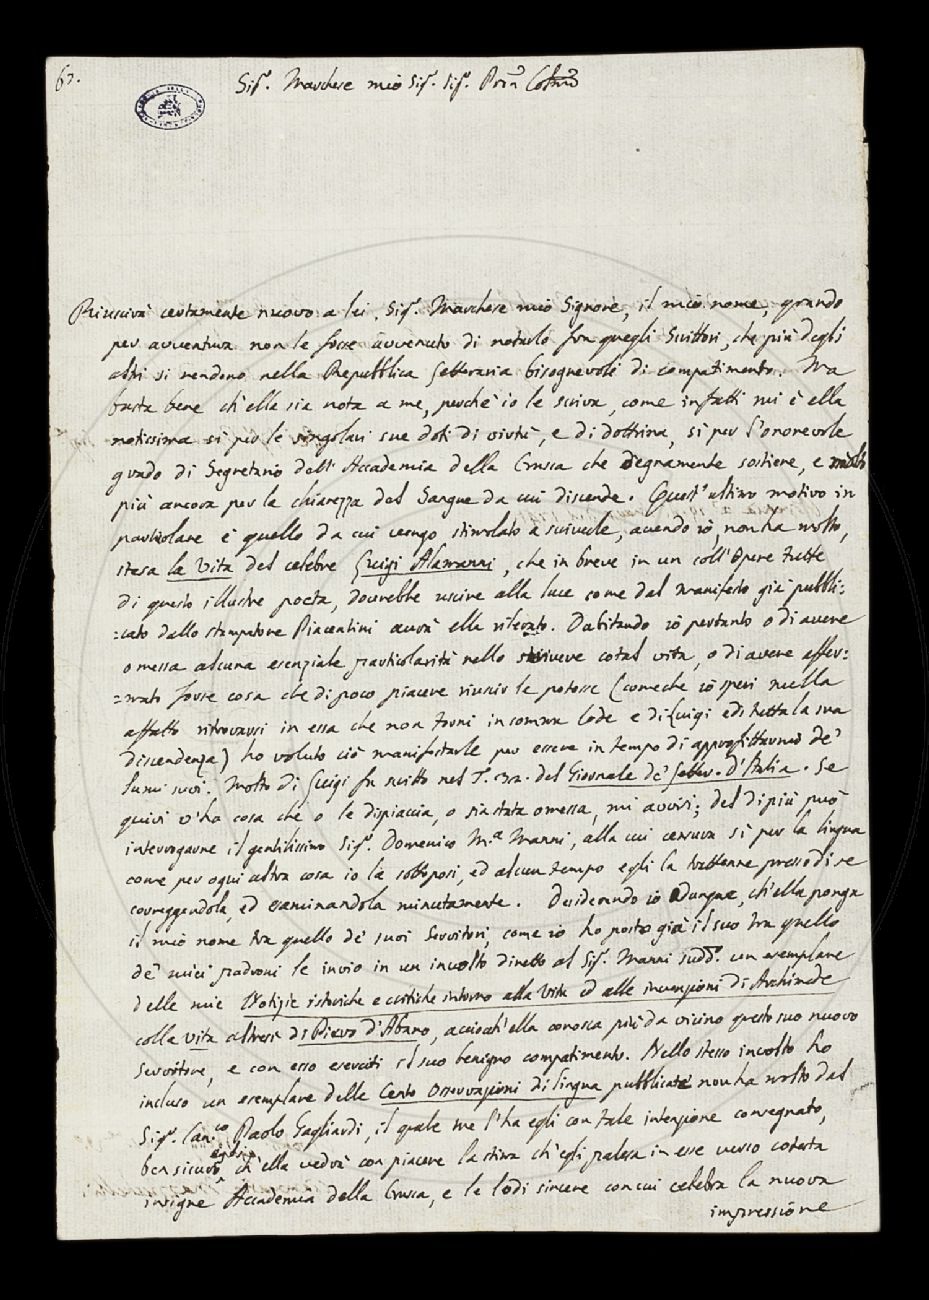 63.
Sig.r Marchese mio Sig.r Sig.r Pad.n Col.mo
Riuscirà certamente nuovo a lei, Sig.r Marchese mio Signore, il mio nome, quando
per avventura non le fosse avvenuto di notarlo fra quegli Scrittori, che più degli
altri si rendono nella Repubblica Letteraria bisognevoli di compatimento. Ma
basta bene ch'ella sia nota a me, perchè io le scriva, come infatti mi è ella
notissima sì per le singolari sue doti di virtù, e di dottrina, sì per l'onorevole
grado di Segretario dell'Accademia della Crusca che degnamente sostiene, e molto
più ancora per la chiarezza del Sangue da cui discende. Quest'ultimo motivo in
particolare è quello da cui vengo stimolato a scriverle, avendo io, non ha molto,
stesa la Vita del celebre Luigi Alamanni, che in breve in un coll'Opere tutte
di questo illustre poeta, dovrebbe uscire alla luce come dal manifesto già pubbli:
:cato dallo stampatore Piacentini avrà ella rilevato. Dubitando io pertanto o di avere
omessa alcuna essenziale particolarità nello scrivere cotal vita, o di avere affer:
:mato forse cosa che di poco piacere riuscir le potesse (comechè io speri nulla
affatto ritrovarsi in essa che non torni in somma lode e di Luigi e di tutta la sua
discendenza) ho voluto ciò manifestarle per essere in tempo di approfittarmi de'
lumi suoi. Molto di Luigi fu scritto nel T. 32. del Giornale de' Letter. d'Italia. Se
quivi v'ha cosa che o le dispiaccia, o sia stata omessa, mi avvisi; del di più può
interrogarne il gentilissimo Sig.r Domenico M.a Manni, alla cui censura sì per la lingua
come per ogni altra cosa io la sottoposi, ed alcun tempo egli la trattenne presso di se
correggendola, ed esaminandola minutamente. Desiderando io Dunque, ch'ella ponga
il mio nome tra quello de' suoi Servitori, come io ho posto già il suo tra quello
de' miei padroni le invio in un involto diretto al Sig.r Manni sudd.o un esemplare
delle mie Notizie istoriche e critiche intorno alla Vita ed alle invenzioni di Archimede
colla vita altresì di Pietro d'Abano, acciocch'ella conosca più da vicino questo suo nuovo
Servitore, e con esso eserciti il suo benigno compatimento. Nello stesso involto ho
incluso un esemplare delle Cento Osservazioni di lingua pubblicate non ha molto dal
Sig.r Can.co Paolo Gagliardi, il quale me l'ha egli con tale intenzione consegnato,
ben sicuro ch'ella vedrà con piacere la stima ch'egli palesa in esse verso cotesta
insigne Accademia della Crusca, e le lodi sincere con cui celebra la nuova
impressione